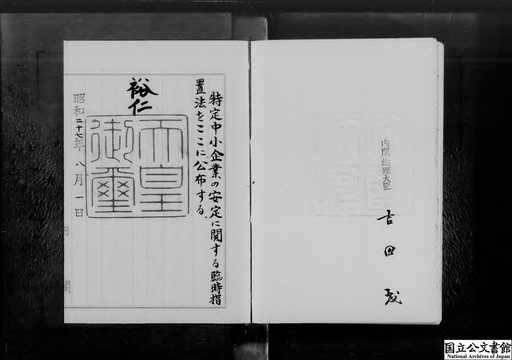 特定中小企業の安定に関する臨時措
置法をここに公布する。
裕仁
天皇
御璽
昭和二十七年八月一日
内閣
内閣総理大臣
吉田茂
国立公文書館
National Archives of Japan